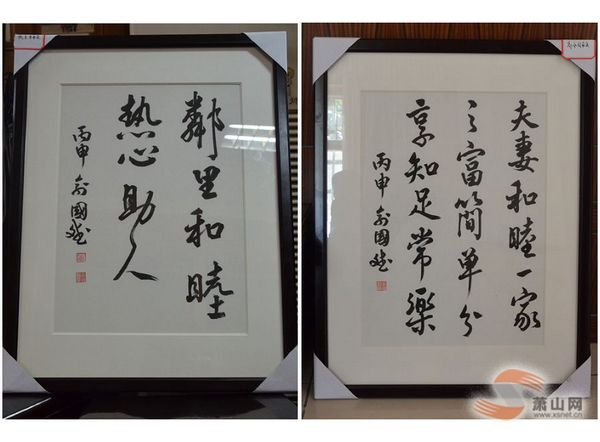 鄰里和睦
热心助人
丙申 俞國斌
夫妻和睦一家
之富簡單分
享知足常樂
丙申 俞國斌
萧山网
www.xsnet.cn